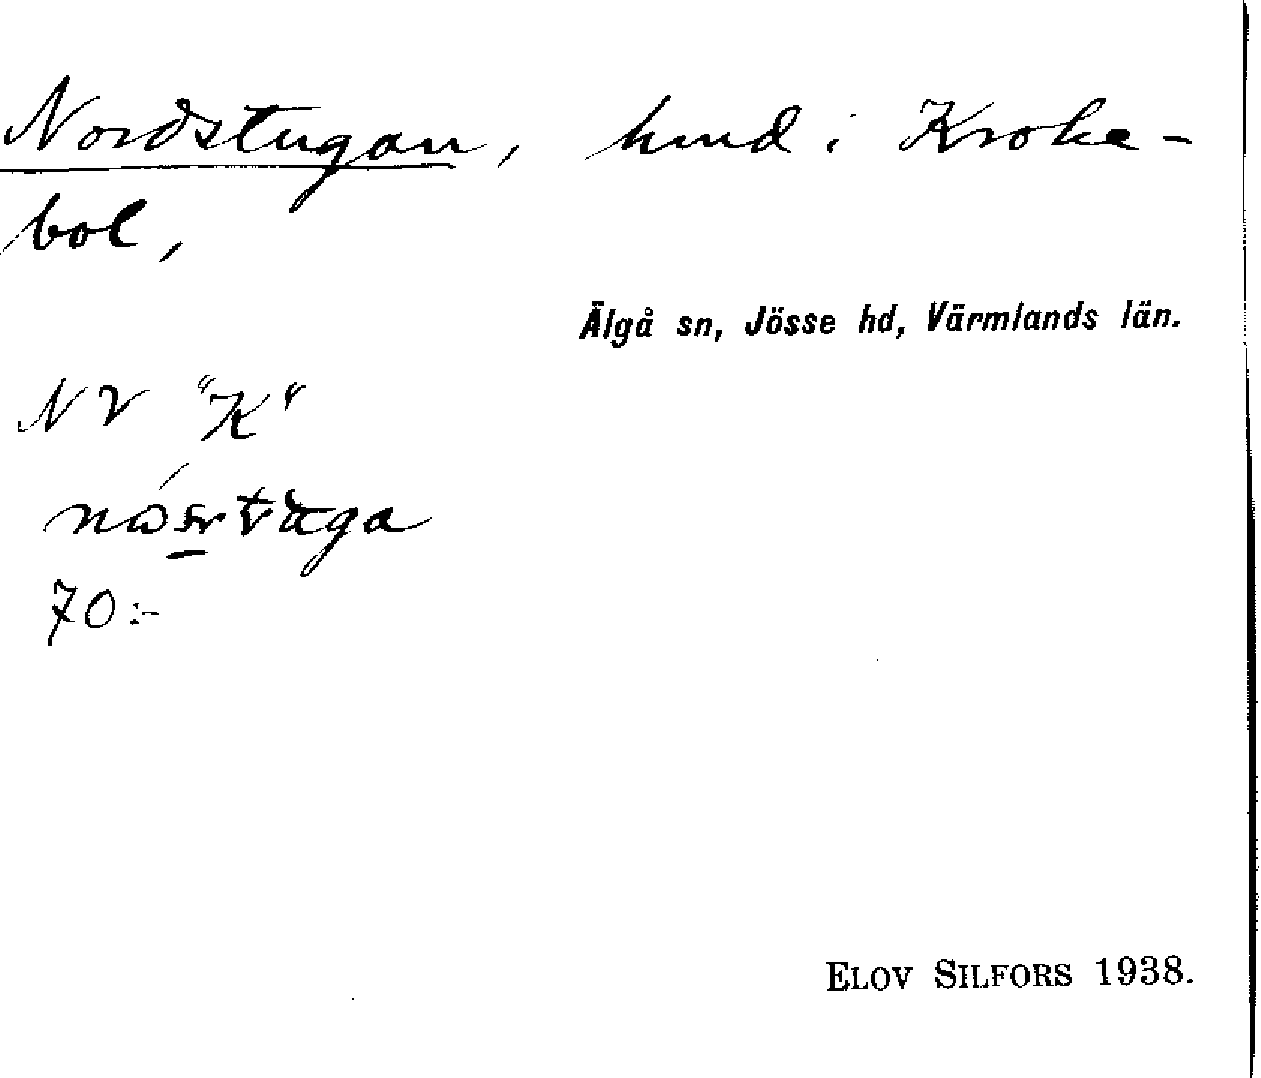 Nordstugan, hmd i Kroke-
bol,
Älgå sn, Jösse hd, Värmlands län.
NV "K"
70:-
ELOV SILFORS 1938.